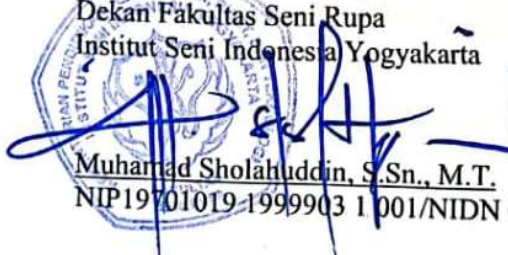 Dekan Fakultas Seni Rupa
Institut Seni Indonesia Yogyakarta
Muhamad Sholahuddin, S.Sn., M.T.
NIP19701019 1999903 1 001/NIDN